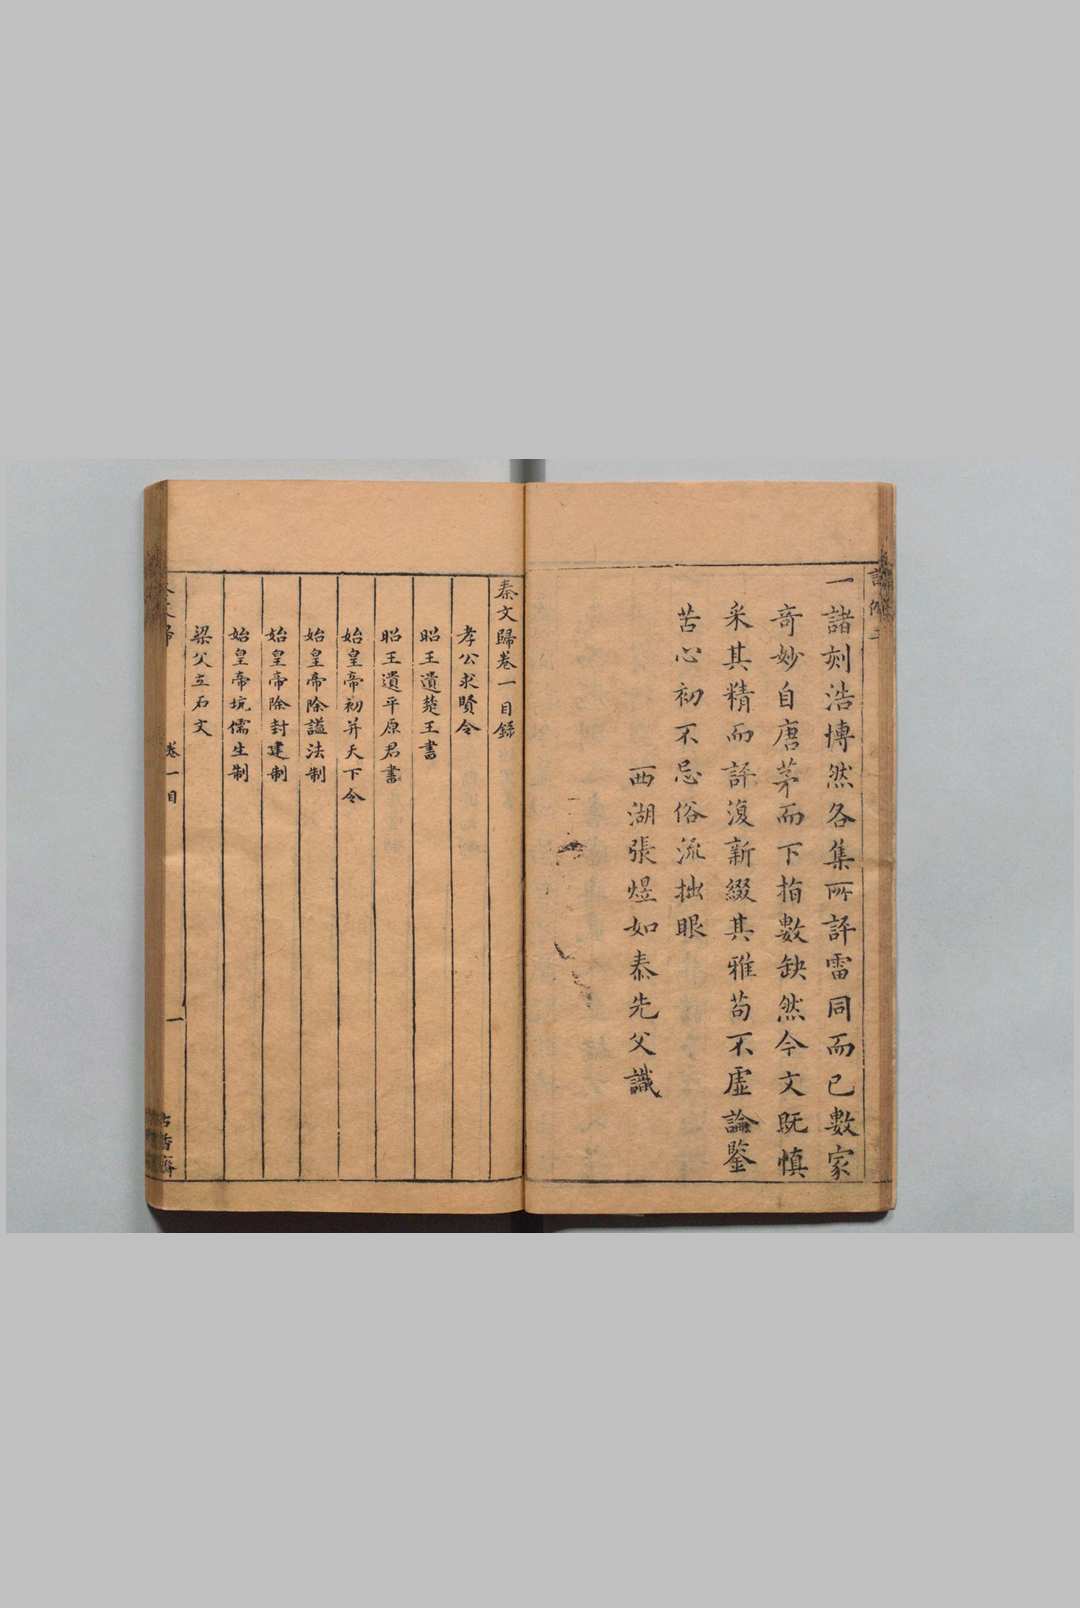 一諸刻浩博然各集所評雷同而已數家
奇妙自唐茅而下指數缺然今文既慎
采其精而評復新綴其雅苟不虛論鑒
苦心初不忌俗流拙眼
西湖張煜如泰先父識
秦文歸卷一目錄
孝公求賢令
昭王遺楚王書
昭王遺平原君書
始皇帝初并天下令
始皇帝除謚法制
始皇帝除封建制
始皇帝坑儒生制
梁父立石文
卷一目
一